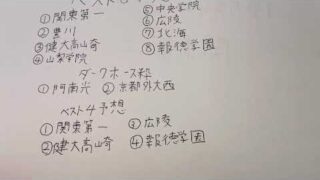 ①関東第一 ⑤中央学院
②豊川 ⑥広陵
③健大高崎 ⑦北海
④山梨学院 ⑧報徳学園
ダークホース枠
①阿南光 ②京都外大西
ベスト4予想
①関東第一 ③広陵
②健大高崎 ④報徳学園